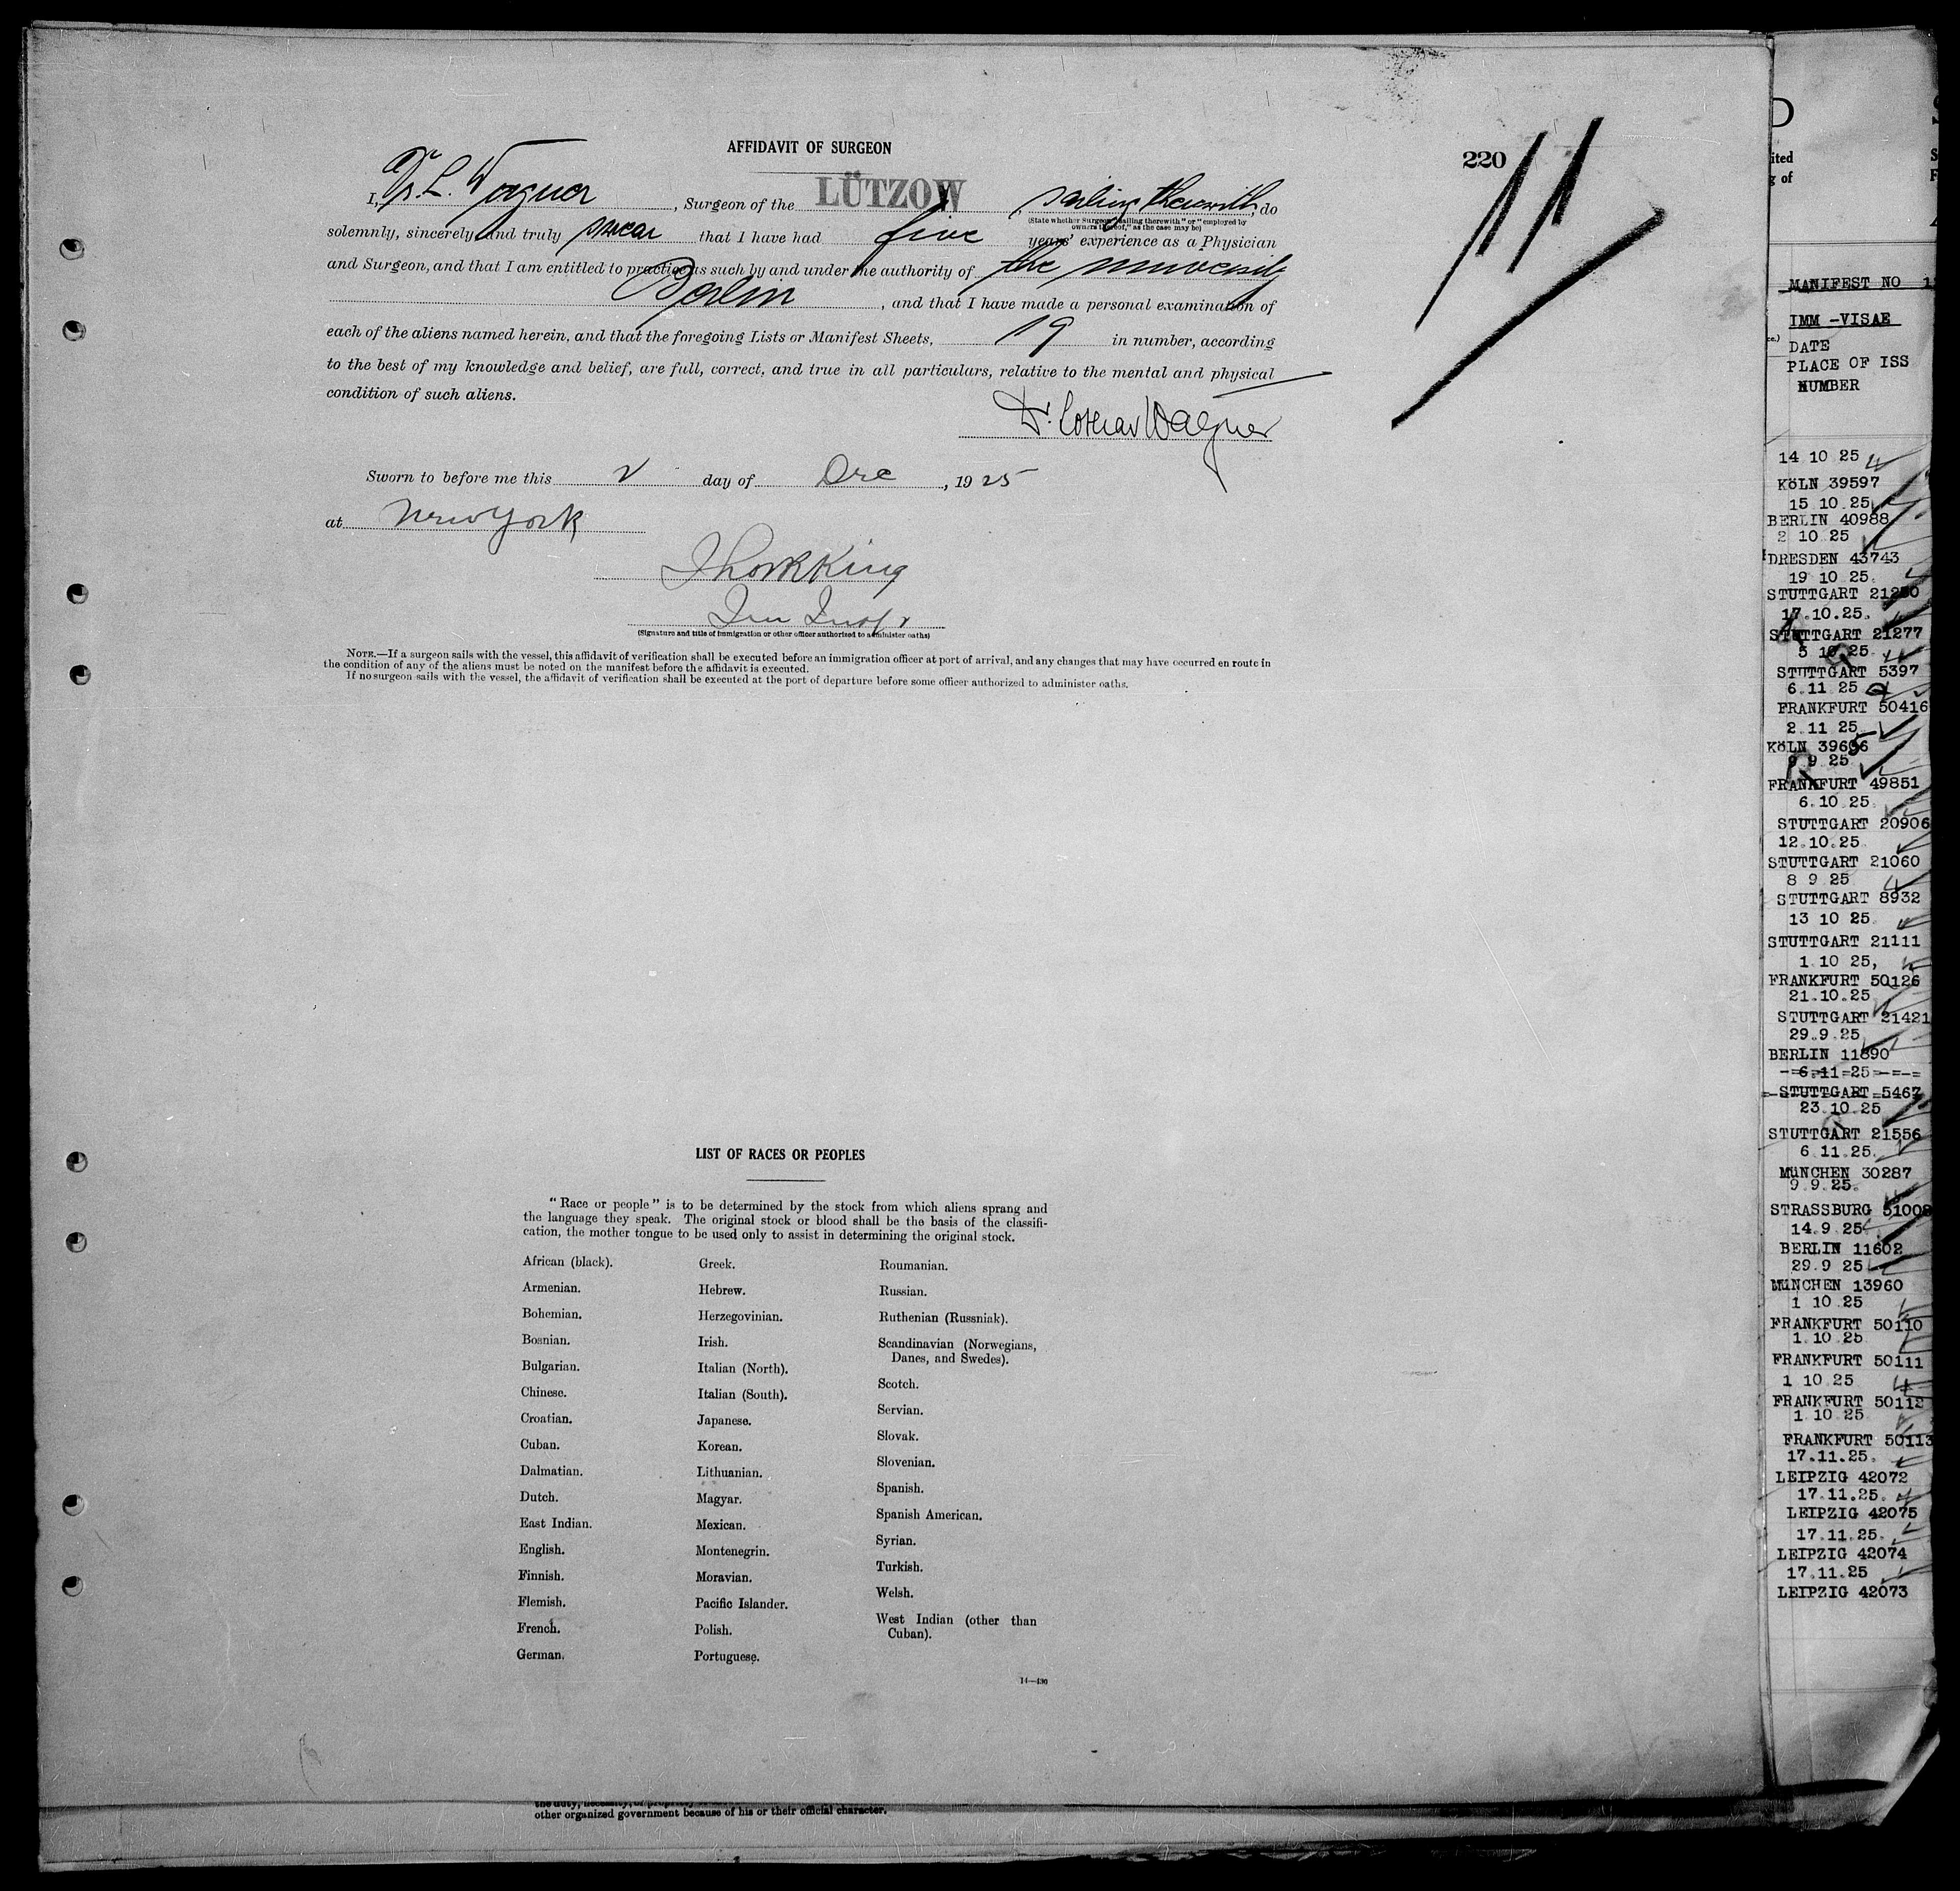 AFFIDAVIT OF SURGEON
220
11
I, Dr. L. Wagner, Surgeon of the LÜTZOW, sailing therewith, do
(State whether Surgeon "sailing therewith" or "employed by
owners thereof," as the case may be)
solemnly, sincerely and truly swear that I have had five years' experience as a Physician
and Surgeon, and that I am entitled to practice as such by and under the authority of the university
Berlin, and that I have made a personal examination of
each of the aliens named herein, and that the foregoing Lists or Manifest Sheets, 19 in number, according
to the best of my knowledge and belief, are full, correct, and true in all particulars, relative to the mental and physical
condition of such aliens.
Dr. Lothar Wagner
Sworn to before me this 2 day of Dec, 1925
at New York
King
(Signature and title of immigration or other officer authorized to administer oaths)
NOTE.—If a surgeon sails with the vessel, this affidavit of verification shall be executed before an immigration officer at port of arrival, and any changes that may have occurred en route in
the condition of any of the aliens must be noted on the manifest before the affidavit is executed.
If no surgeon sails with the vessel, the affidavit of verification shall be executed at the port of departure before some officer authorized to administer oaths.
LIST OF RACES OR PEOPLES
"Race or people" is to be determined by the stock from which aliens sprang and
the language they speak. The original stock or blood shall be the basis of the classifi-
cation, the mother tongue to be used only to assist in determining the original stock.
African (black).
Armenian.
Bohemian.
Bosnian.
Bulgarian.
Chinese.
Croatian.
Cuban.
Dalmatian.
Dutch.
East Indian.
English.
Finnish.
Flemish.
French.
German.
Greek.
Hebrew.
Herzegovinian.
Irish.
Italian (North).
Italian (South).
Japanese.
Korean.
Lithuanian.
Magyar.
Mexican.
Montenegrin.
Moravian.
Pacific Islander.
Polish.
Portuguese.
Roumanian.
Russian.
Ruthenian (Russniak).
Scandinavian (Norwegians,
Danes, and Swedes).
Scotch.
Servian.
Slovak.
Slovenian.
Spanish.
Spanish American.
Syrian.
Turkish.
Welsh.
West Indian (other than
Cuban).
14—430
other organized government because of his or their official character.
MANIFEST NO
IMM -VISAE
DATE
PLACE OF ISS
NUMBER
14 10 25
KöLN 39597
15 10 25
BERLIN 40988
2 10 25
DRESDEN 43743
19 10 25.
STUTTGART
17.10.25.
STUTTGART 21277
5 10 25
STUTTGART 5397
6.11 25
FRANKFURT 50416
2.11 25
KöLN
9 9 25
FRANKFURT 49851
6.10 25
STUTTGART 20906
12.10.25
STUTTGART 21060
8 9 25
STUTTGART 8932
13 10 25
STUTTGART 21111
1 10 25,
FRANKFURT 50126
21.10.25
STUTTGART 21421
29.9.25
BERLIN 11890
6.11 25
STUTTGART 5467
23.10.25
STUTTGART 21556
6 11 25.
MüNCHEN 30287
9.9.25.
STRASSBURG 51008
14.9 25
BERLIN 11602
29.9 25
MüNCHEN 13960
1 10 25
FRANKFURT 50110
1.10 25
FRANKFURT 50111
1 10 25
FRANKFURT 50112
1 10 25
FRANKFURT 50113
17.11.25.
LEIPZIG 42072
17.11.25.
LEIPZIG 42075
17.11.25.
LEIPZIG 42074
17.11.25
LEIPZIG 42073